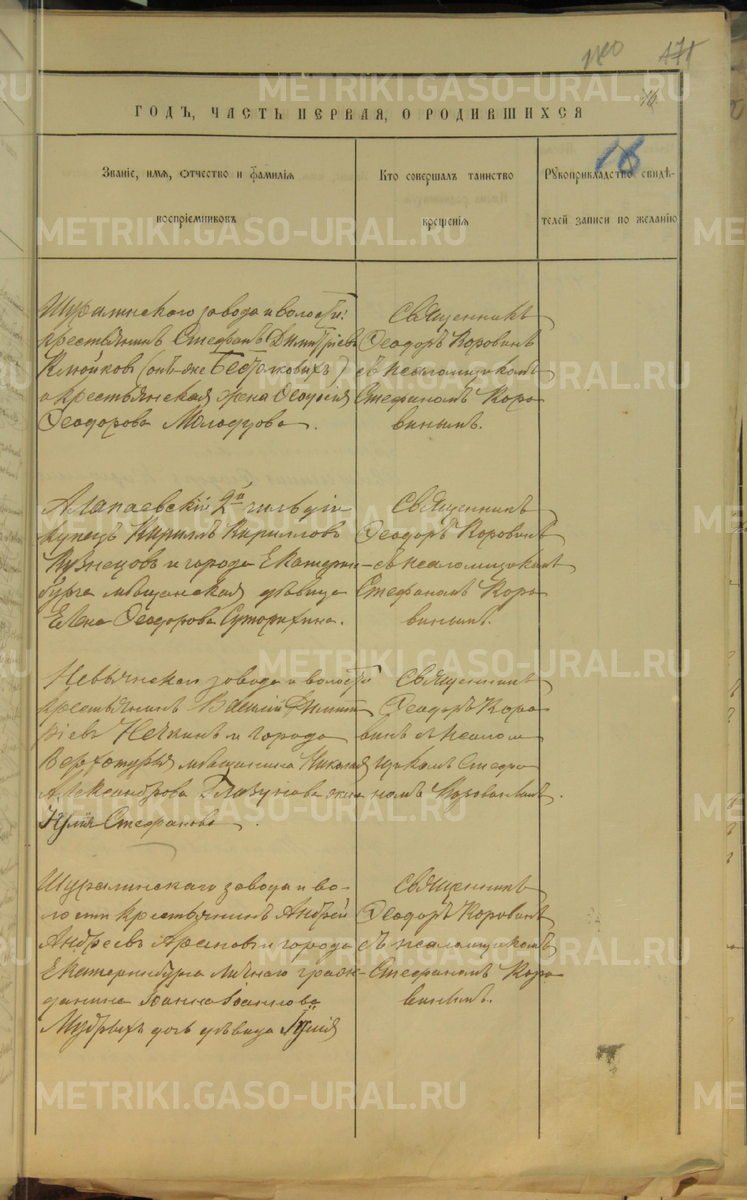 180 471
METRIKI.GASO-URAL.RU
16
ГОДЪ, ЧАСТЬ ПЕРВАЯ, О РОДИВШИХСЯ
16
Званіе, имя, отчество и фамилія воспріемниковъ
Кто совершалъ таинство крещенія
Рукоприкладство свидѣтелей записи по желанію
METRIKI.GASO-URAL.RU
Шуралинскаго завода и волости
крестьянинъ Стефанъ Димитріевъ
(онъ-же
и крестьянская жена Феодосія
Феодорова Молодцова.
Священникъ
Феодоръ Коровинъ
съ псаломщикомъ
Стефаномъ Коро
винымъ.
METRIKI.GASO-URAL.RU
Алапаевскій 2й гильдіи
купецъ Кириллъ Кирилловъ
Кузнецовъ и города Екатерин-
бурга мѣщанская дѣвица
Елена Феодорова Суторихина.
Священникъ
Феодоръ Коровинъ
съ псаломщикомъ
Стефаномъ Коро
винымъ.
METRIKI.GASO-URAL.RU
Невьянскаго завода и волости
крестьянинъ Василій Димит
ріевъ Нечкинъ и города
Верхотурья мѣщанина Николая
Александрова Глазунова жена
Юлія Стефанова.
Священникъ
Феодоръ Коро
винъ съ псалом
щикомъ Стефа
номъ Коровинымъ.
METRIKI.GASO-URAL.RU
Шуралинскаго завода и во-
лости крестьянинъ Андрей
Андреевъ и города
Екатеринбурга личнаго граж-
данина Іоанна Іоаннова
Мудрыхъ дочь дѣвица Юлія
Священникъ
Феодоръ Коровинъ
съ псаломщикомъ
Стефаномъ Коро
винымъ.
METRIKI.GASO-URAL.RU
METRIKI.GASO-URAL.RU